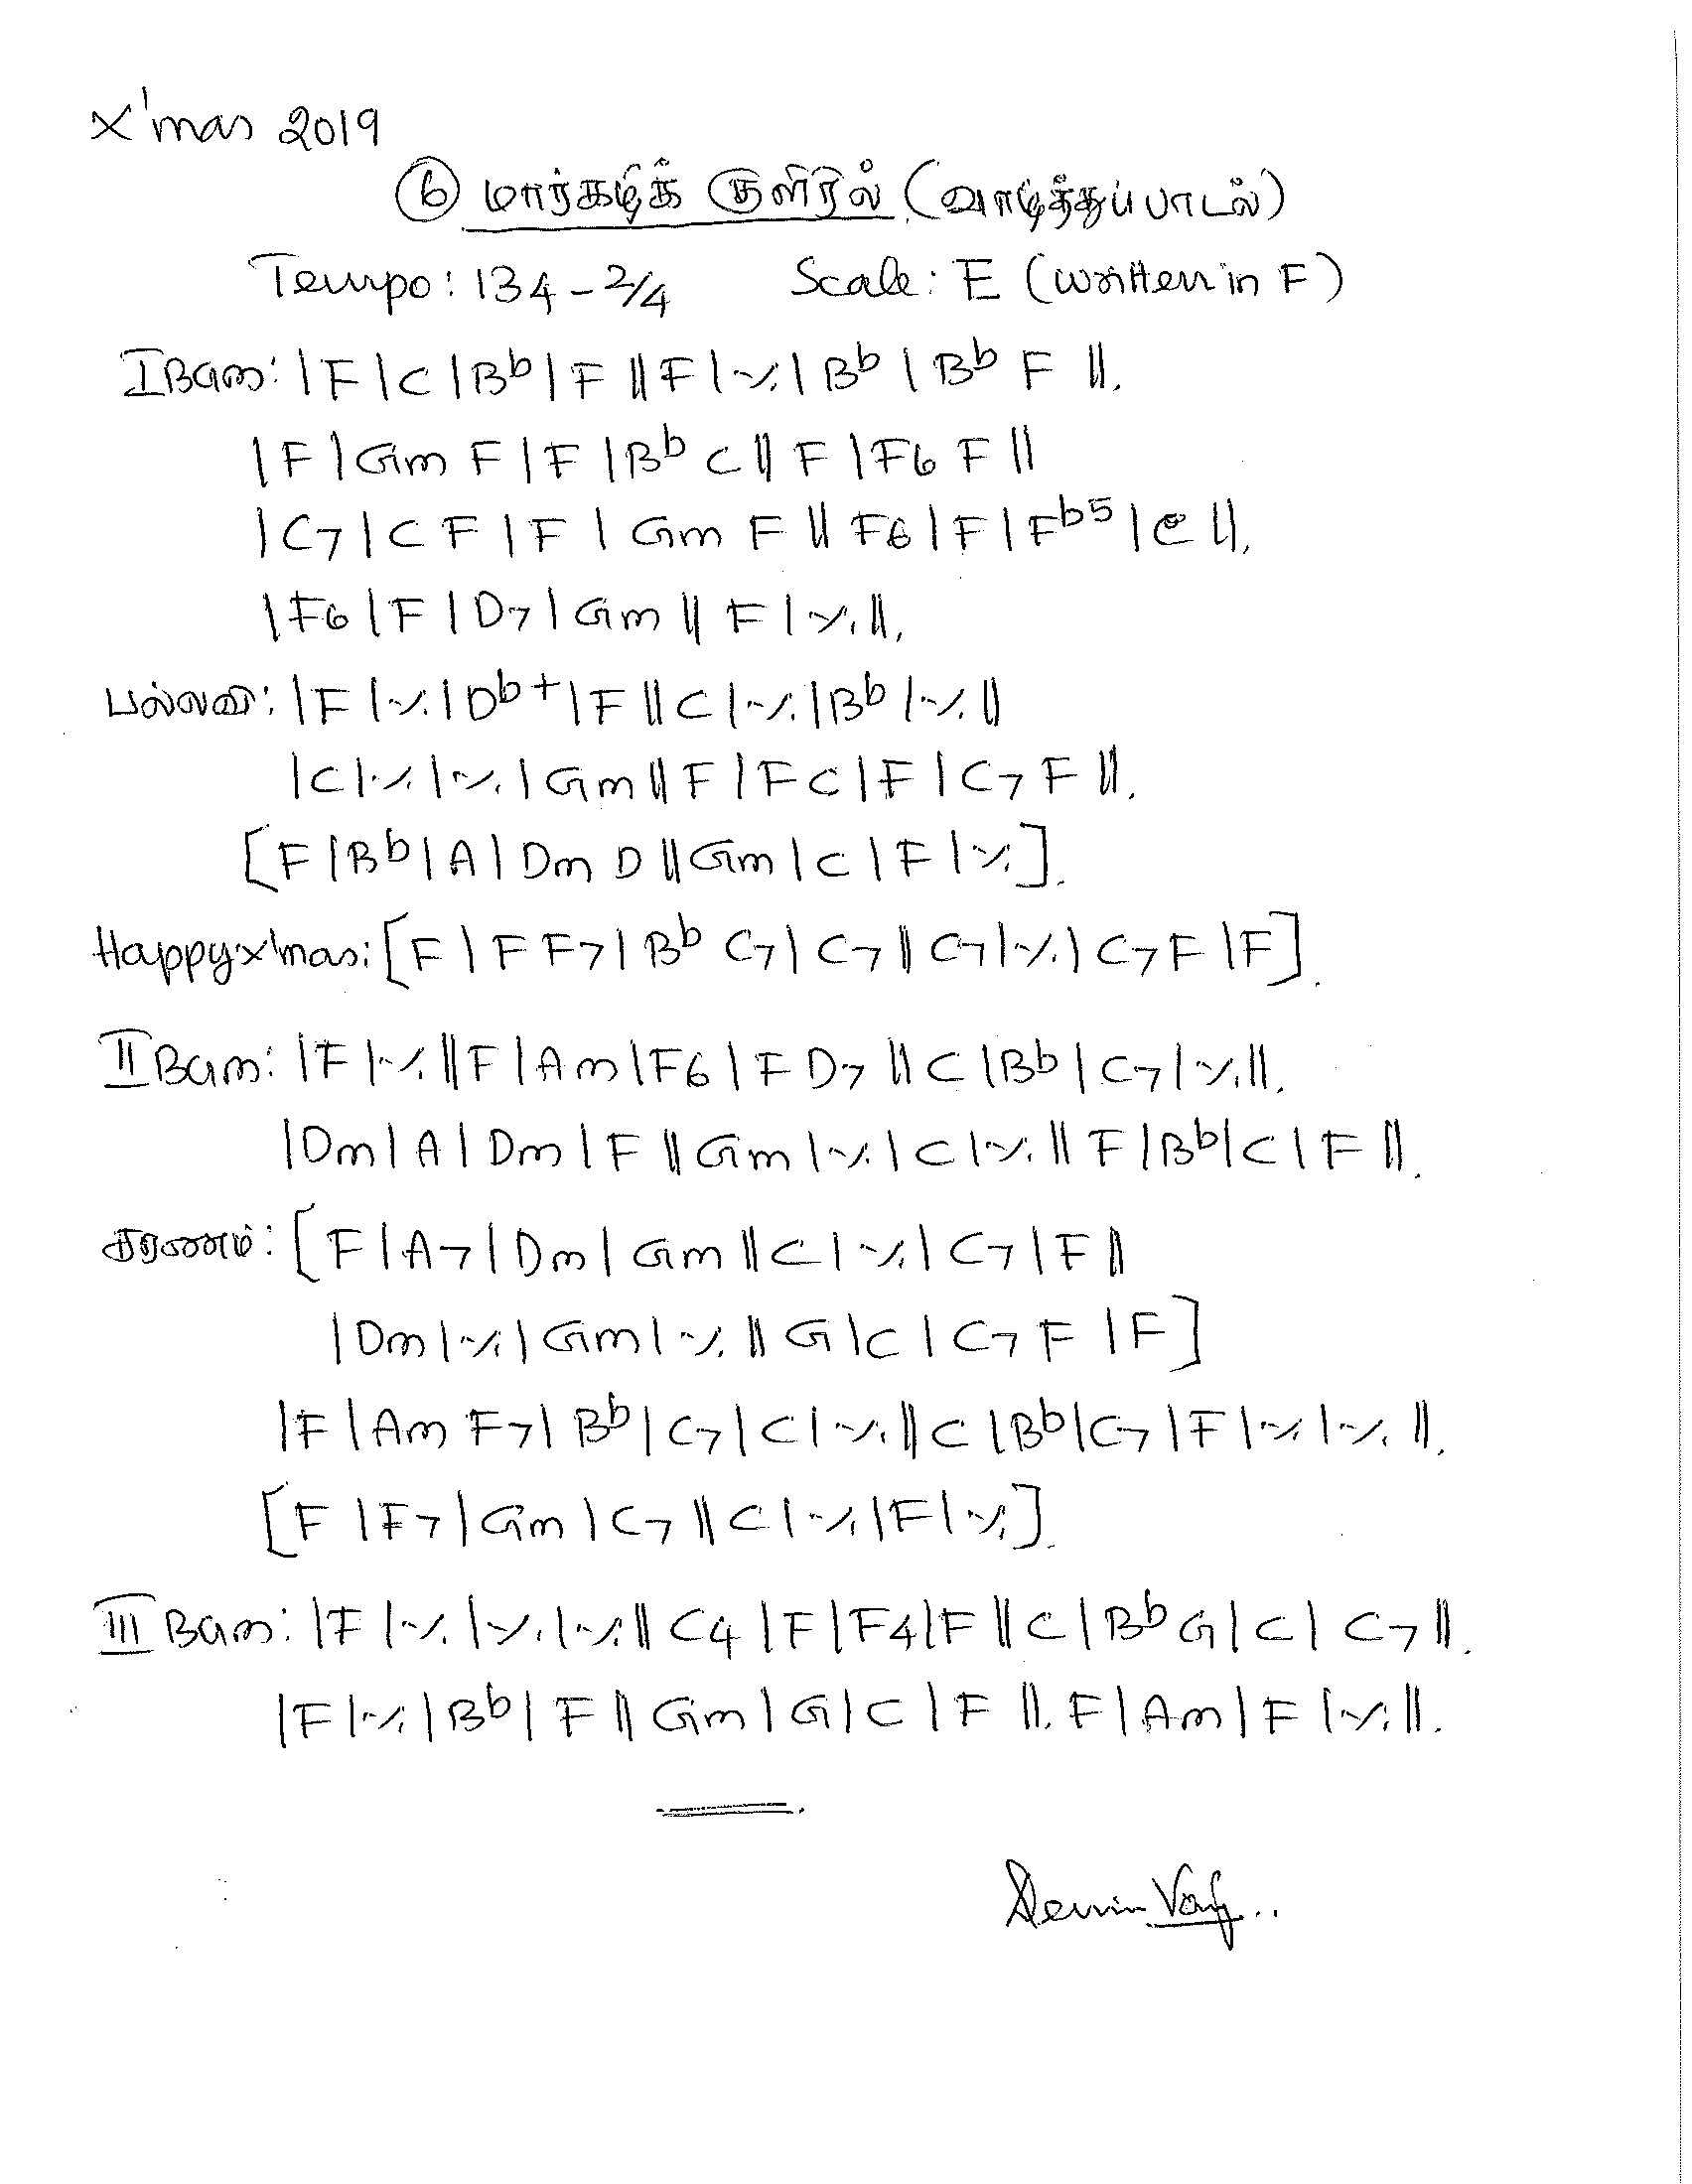 X'mas 2019
⑥ மார்கழிக் குளிரில் (வாழ்த்துப்பாடல்)
Tempo: 134 - 2/4 Scale: E (written in F)
I BGm: | F | C | Bb | F || F | ٪ | Bb | Bb F ||.
| F | Gm F | F | Bb C || F | F6 F ||
| C7 | C F | F | Gm F || F6 | F | Fb5 | C ||.
| F6 | F | D7 | Gm || F | ٪ ||.
பல்லவி: | F | ٪ | Db+ | F || C | ٪ | Bb | ٪ ||
| C | ٪ | ٪ | Gm || F | F C | F | C7 F ||.
[ F | Bb | A | Dm D || Gm | C | F | ٪ ].
Happy x'mas: [ F | F F7 | Bb C7 | C7 || C7 | ٪ | C7 F | F ].
II BGm: | F | ٪ || F | Am | F6 | F D7 || C | Bb | C7 | ٪ ||.
| Dm | A | Dm | F || Gm | ٪ | C | ٪ || F | Bb | C | F ||.
சரணம்: [ F | A7 | Dm | Gm || C | ٪ | C7 | F ||
| Dm | ٪ | Gm | ٪ || G | C | C7 F | F ]
| F | Am F7 | Bb | C7 | C | ٪ || C | Bb | C7 | F | ٪ | ٪ ||.
[ F | F7 | Gm | C7 || C | ٪ | F | ٪ ].
III BGm: | F | ٪ | ٪ | ٪ || C4 | F | F4 | F || C | Bb G | C | C7 ||.
| F | ٪ | Bb | F || Gm | G | C | F ||. F | Am | F | ٪ ||.